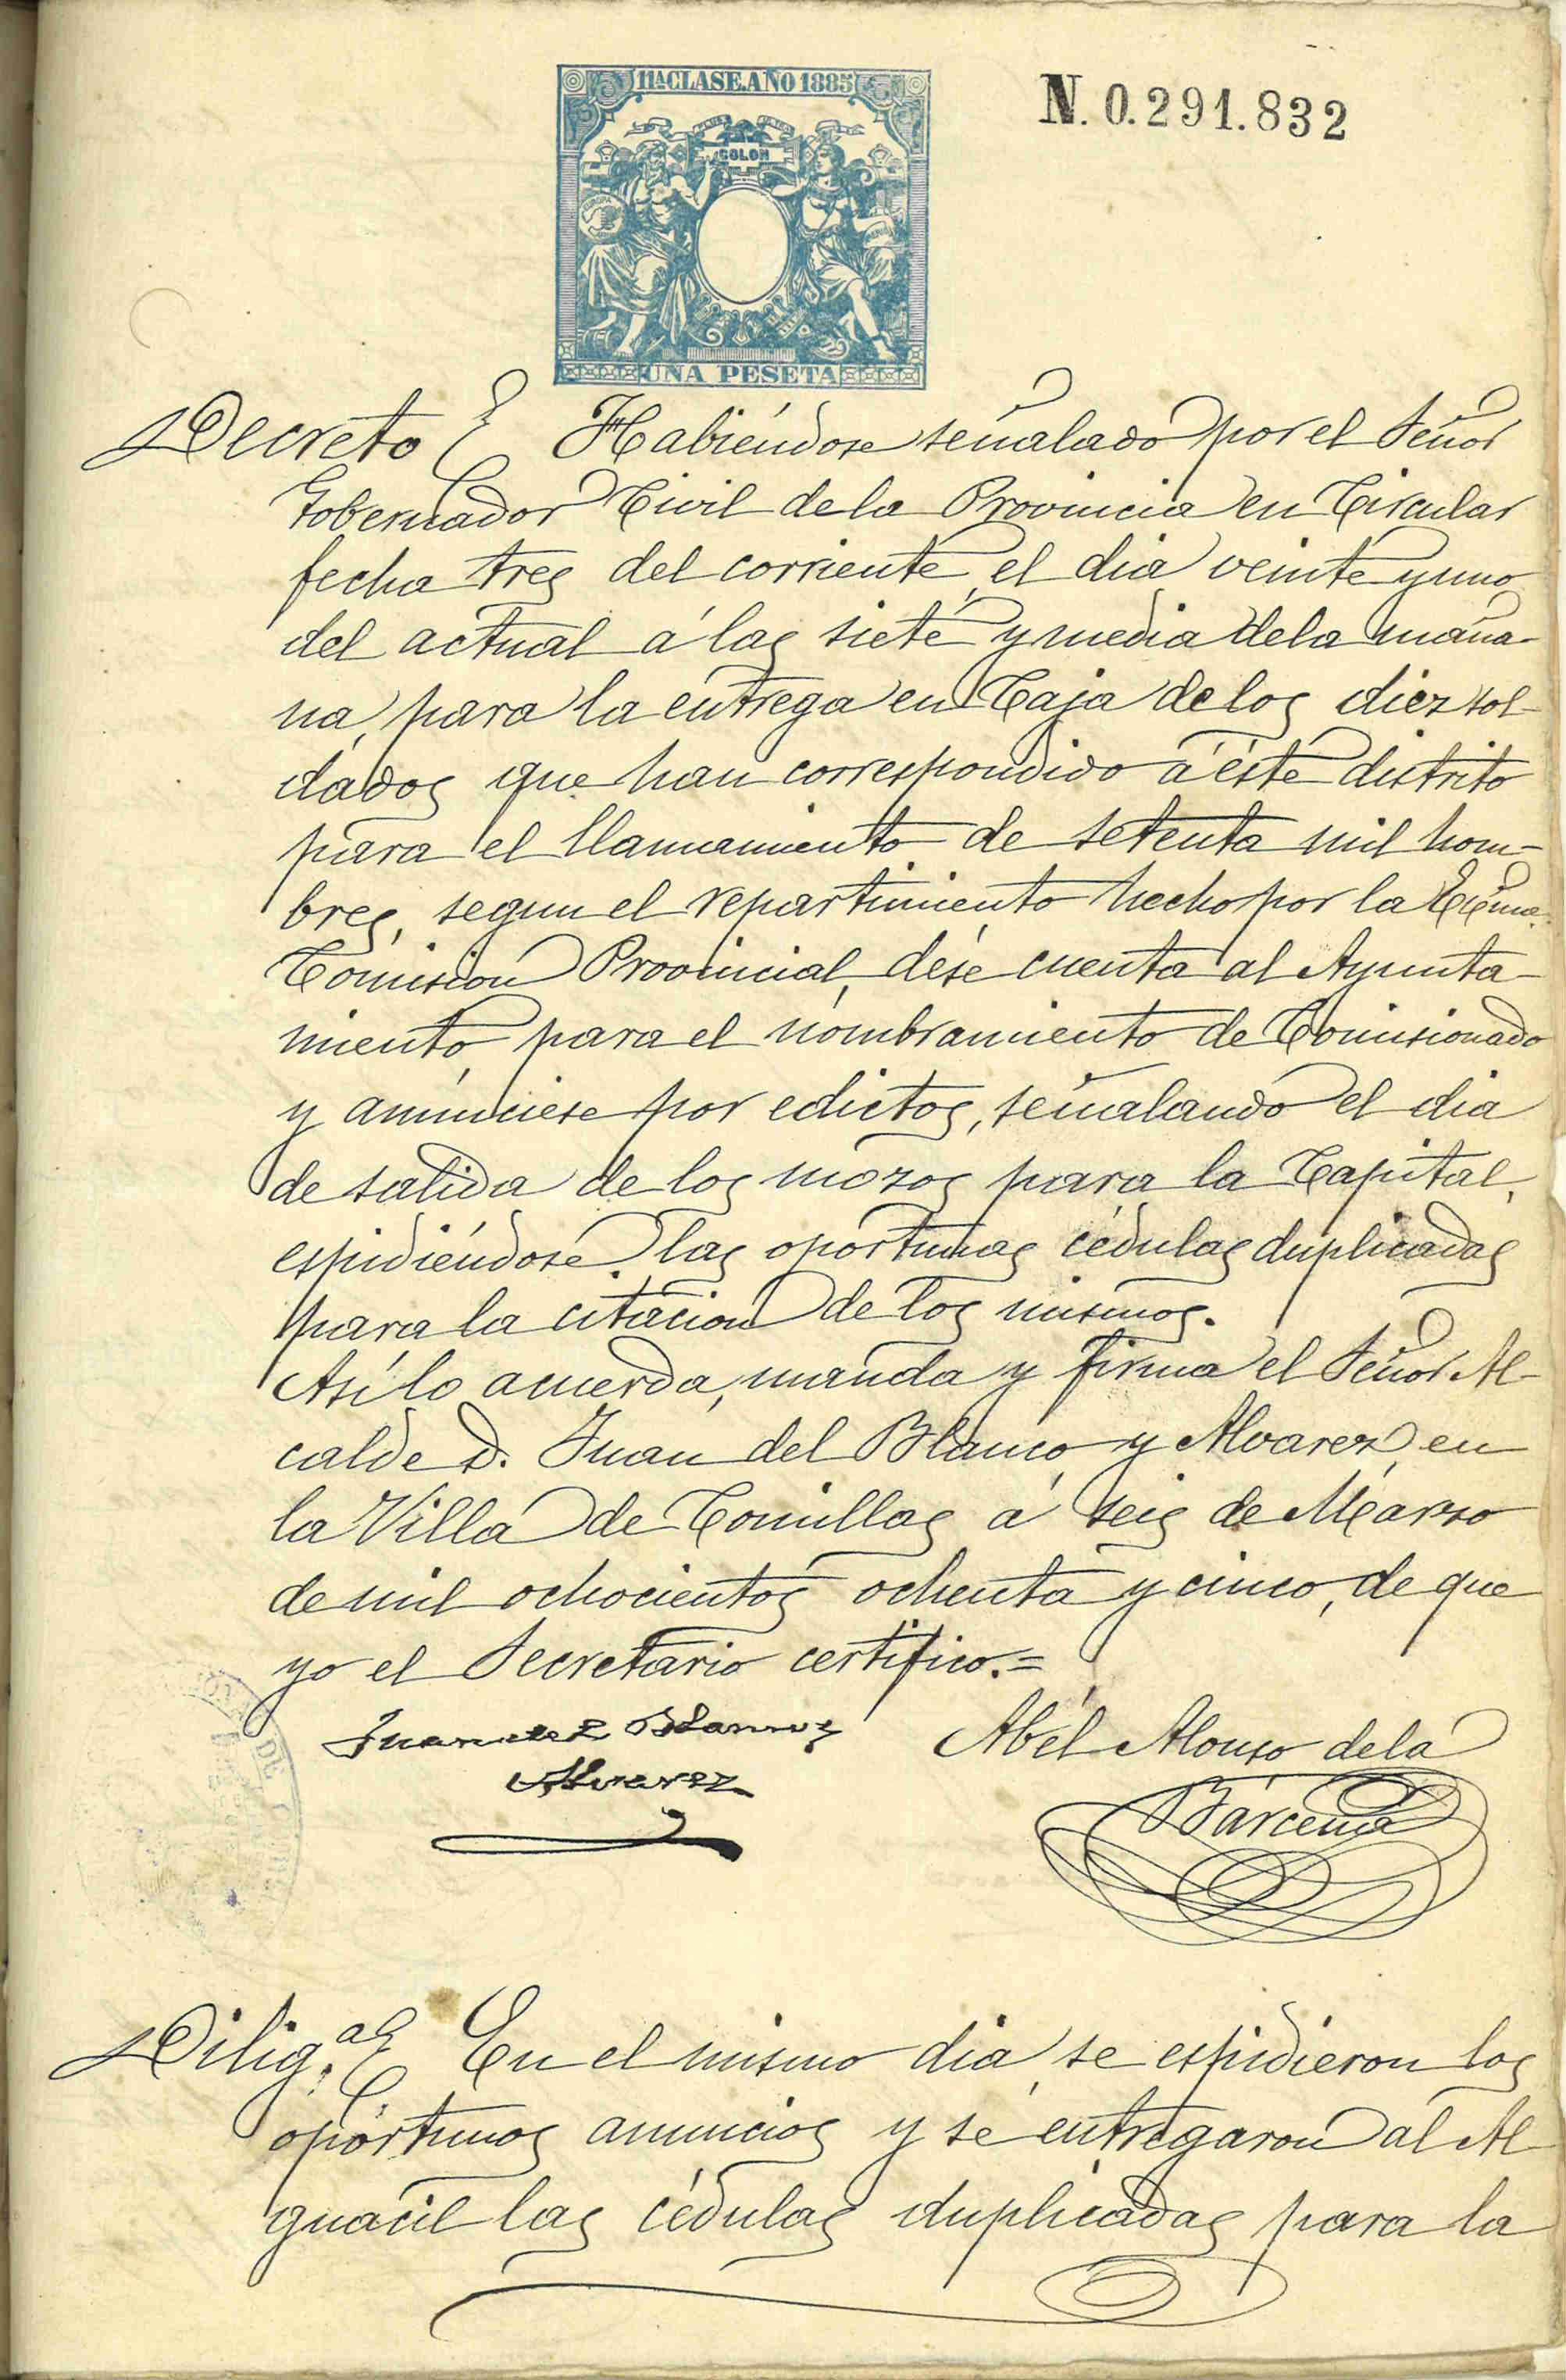 11ª CLASE. AÑO 1885
N. 0.291.832
COLON
UNA PESETA
Decreto Habiéndose señalado por el Señor
Gobernador Civil de la Provincia en Circular
fecha tres del corriente, el dia veinte y uno
del actual á las siete y media de la maña-
na, para la entrega en Caja de los diez sol-
dados que han correspondido á éste distrito
para el llamamiento de setenta mil hom-
bres, segun el repartimiento hecho por la Excma.
Comision Provincial, dése cuenta al Ayunta-
miento, para el nombramiento de Comisionado
y anúnciese por edictos, señalando el dia
de salida de los mozos para la Capital,
espidiéndose las oportunas cédulas duplicadas
para la citacion de los mismos.
Así lo acuerda, manda y firma el Señor Al-
calde D. Juan del Blanco y Alvarez, en
la Villa de Comillas á seis de Marzo
de mil ochocientos ochenta y cinco, de que
yo el Secretario certifico.=
Juan del Blanco y
Alvarez
Abél Alonso de la
Bárcena
Dilig.ª En el mismo dia, se espidieron los
oportunos anuncios y se entregaron al Al-
guacil las cédulas duplicadas para la